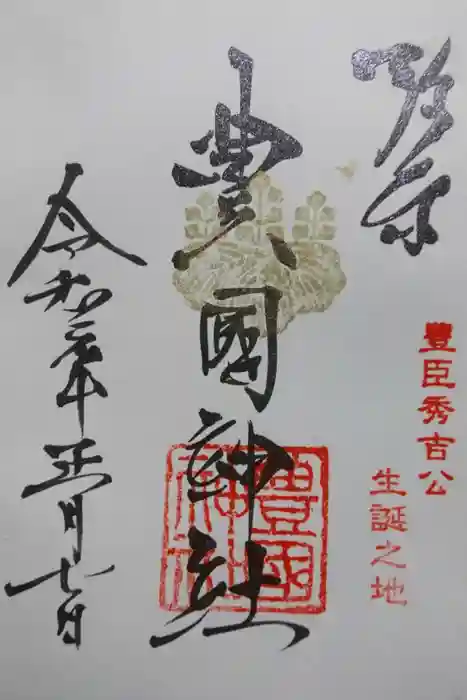 豊臣秀吉公
生誕之地
豊國神社
豊國
神社
令和年正月七日